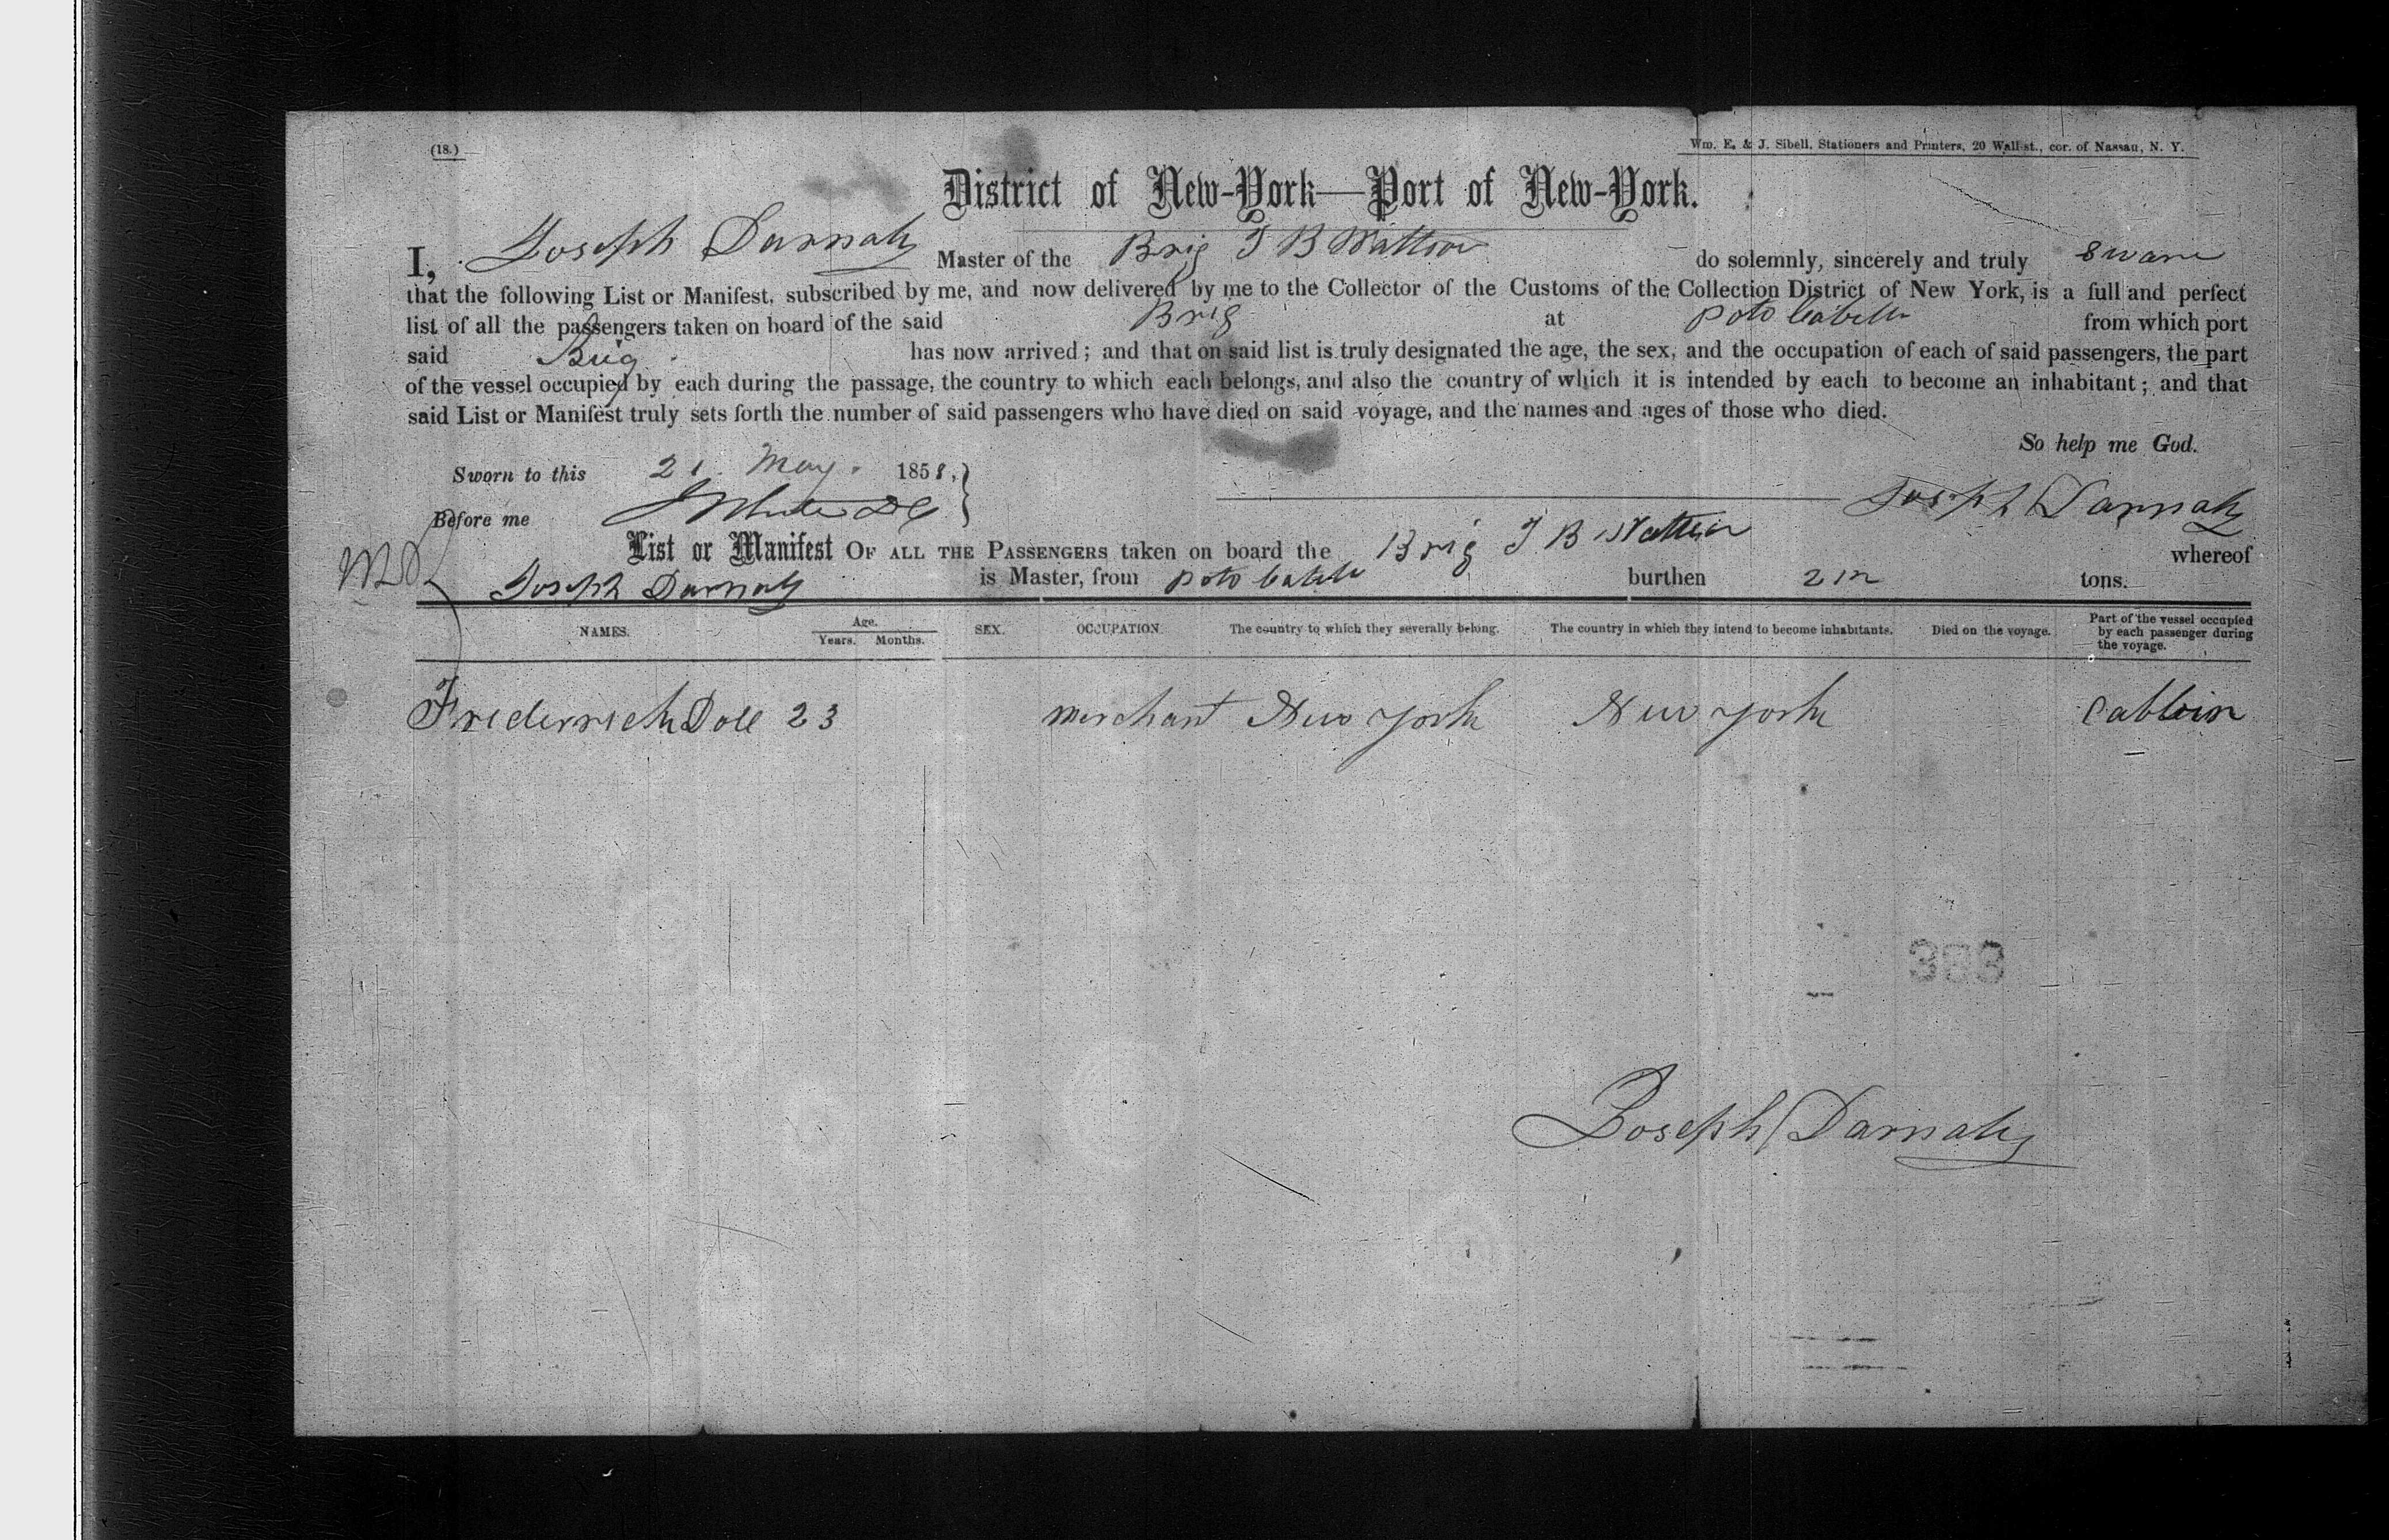 (18.)
Wm. E. & J. Sibell, Stationers and Printers, 20 Wall-st., cor. of Nassau, N. Y.
District of New-York—Port of New-York.
I, Joseph Darnaby Master of the Brig T B Wattson do solemnly, sincerely and truly sware
that the following List or Manifest, subscribed by me, and now delivered by me to the Collector of the Customs of the Collection District of New York, is a full and perfect
list of all the passengers taken on board of the said Brig at Poto Cabello from which port
said Brig has now arrived; and that on said list is truly designated the age, the sex, and the occupation of each of said passengers, the part
of the vessel occupied by each during the passage, the country to which each belongs, and also the country of which it is intended by each to become an inhabitant; and that
said List or Manifest truly sets forth the number of said passengers who have died on said voyage, and the names and ages of those who died.
So help me God.
Sworn to this 21. May. 1858,
Before me
Joseph Darnaby
List or Manifest OF ALL THE PASSENGERS taken on board the Brig T. B Wattson whereof
Joseph Darnaby is Master, from Poto Cabello burthen tons.
NAMES. Age. Years. Months. SEX. OCCUPATION. The country to which they severally belong. The country in which they intend to become inhabitants. Died on the voyage. Part of the vessel occupied by each passenger during the voyage.
Frederrick Doll 23 merchant New York New York Cabbin
383
Joseph Darnaby